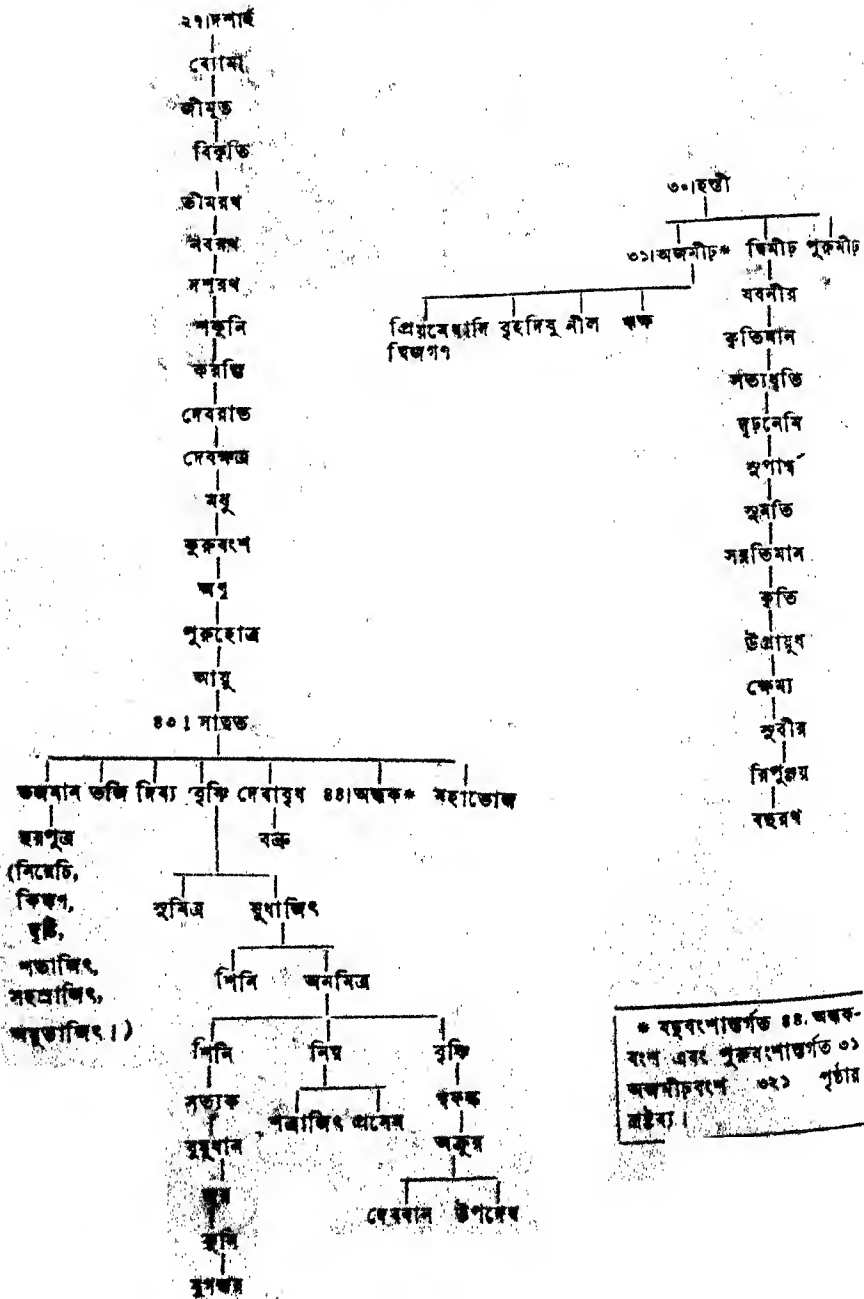 ২৭।দশার্হ
ব্যোমা
জীমূত
বিকৃতি
ভীমরথ
নবরথ
দশরথ
শকুনি
করম্ভি
দেবরাত
দেবক্ষত্র
মধু
কুরুবংশ
অণু
পুরুহোত্র
আয়ু
৪০। সাত্বত
ভজমান ভজি দিব্য বৃষ্ণি দেবাবৃধ ৪৪।অন্ধক* মহাভোজ
ছয়পুত্র
বভ্রু
(নিম্লোচি,
কিঙ্কণ,
ধৃষ্টি,
শতাজিৎ,
সহস্রাজিৎ,
অযুতাজিৎ।)
সুমিত্র যুধাজিৎ
শিনি অনমিত্র
শিনি নিম্ন বৃষ্ণি
সত্যক
যুযুধান
জয়
কুনি
যুগন্ধর
সত্রাজিৎ প্রসেন
শ্বফল্ক
অক্রূর
দেববান উপদেব
৩০।হস্তী
৩১।অজমীঢ়* দ্বিমীঢ় পুরুমীঢ়
প্রিয়মেধাদি বৃহদিষু নীল ঋক্ষ
দ্বিজগণ
যবনীর
কৃতিমান
সত্যধৃতি
দৃঢ়নেমি
সুপার্শ্ব
সুমতি
সন্নতিমান
কৃতি
উগ্রায়ুধ
ক্ষেম্য
সুবীর
রিপুঞ্জয়
বহুরথ
* যদুবংশান্তর্গত ৪৪. অন্ধক-
বংশ এবং পুরুবংশান্তর্গত ৩১
অজমীঢ়বংশ ৩২১ পৃষ্ঠায়
দ্রষ্টব্য।